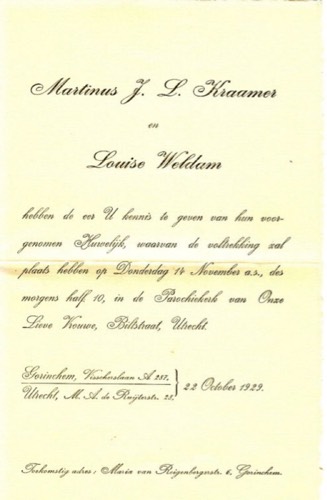 Martinus J. L. Kraamer
en
Louise Weldam
hebben de eer U kennis te geven van hun voor-
genomen Huwelijk, waarvan de voltrekking zal
plaats hebben op Donderdag 14 November a.s., des
morgens half 10, in de Parochiekerk van Onze
Lieve Vrouwe, Biltstraat, Utrecht.
Gorinchem, Visscherslaan A 257.
Utrecht, M. A. de Ruijterstr. 23.
22 October 1929.
Toekomstig adres: Maria van Reigenbergerstr. 6, Gorinchem.